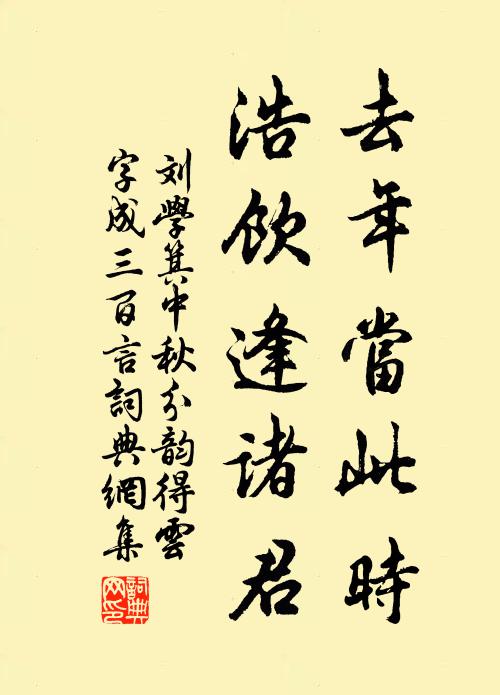 去年當此時
浩飲逢诸君
刘學箕中秋分韵得雲
字成三百言詞典網集